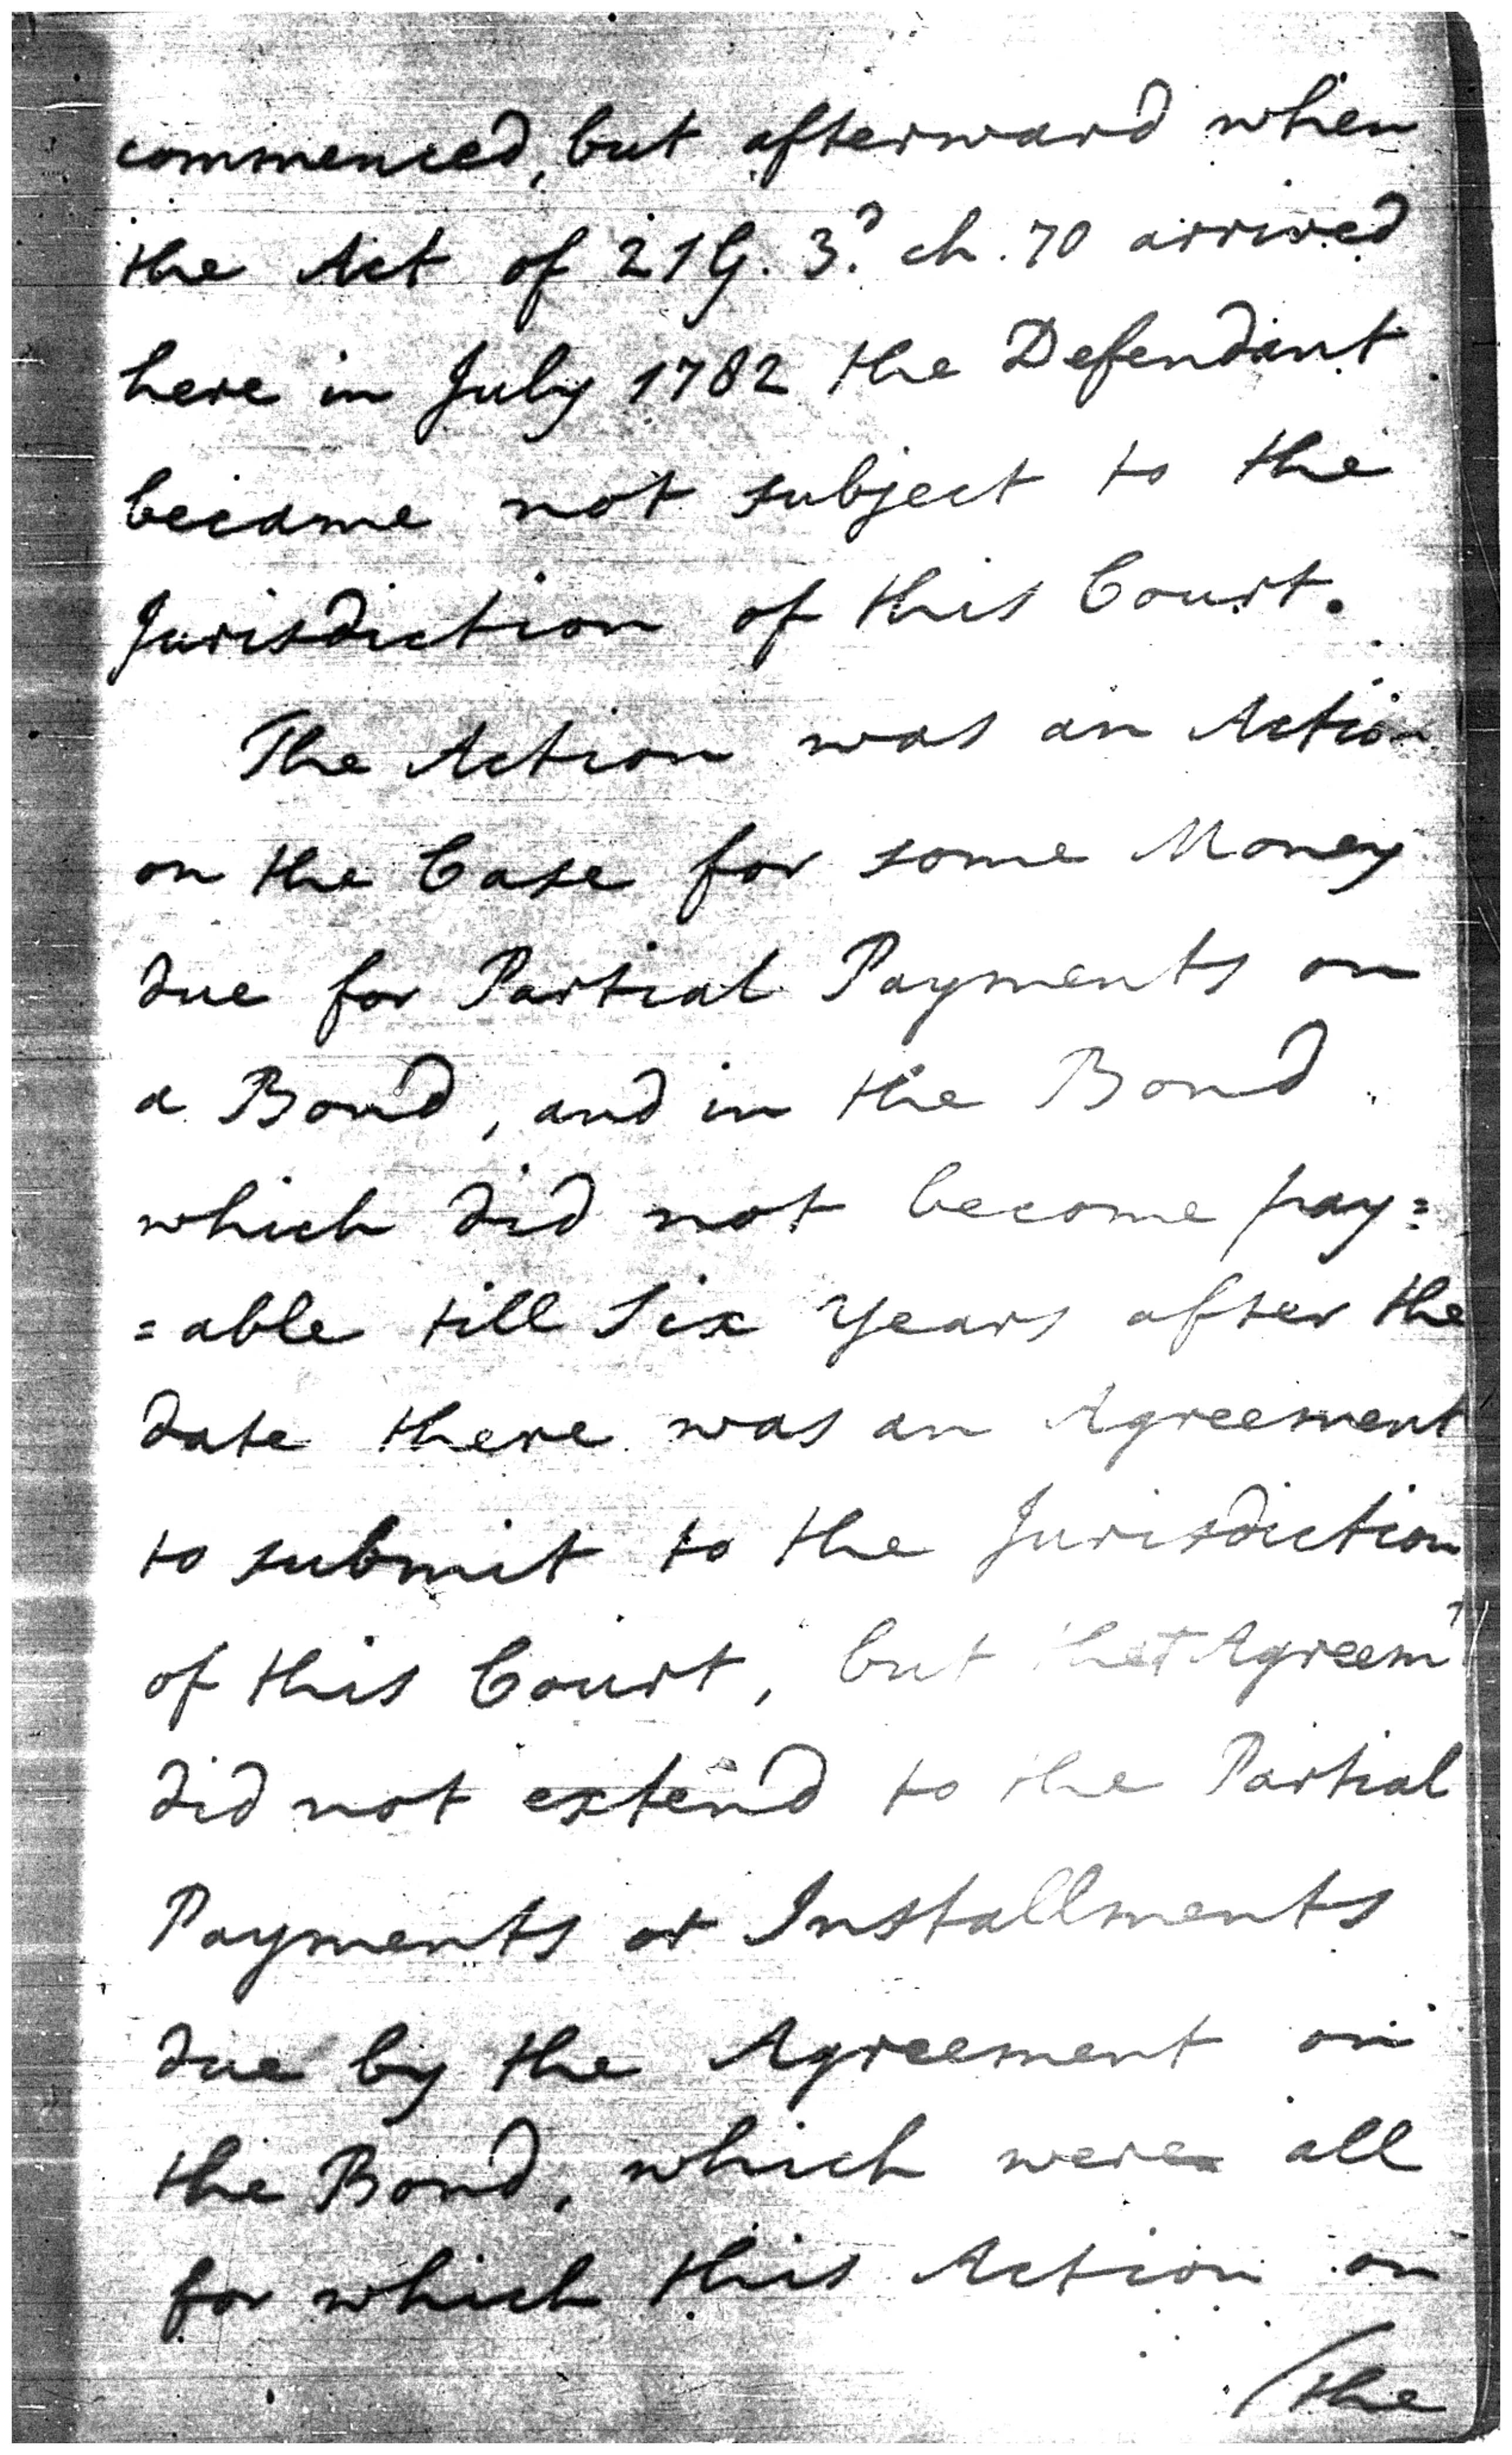 commenced, but afterward when
the Act of 21 G. 3.d ch. 70 arrived
here in July 1782 the Defendant
became not subject to the
Jurisdiction of this Court.
The Action was an Action
on the Case for some Money
due for Partial Payments on
a Bond, and in the Bond
which did not become pay=
=able till Six Years after the
date there was an Agreement
to submit to the Jurisdiction
of this Court, but that Agreemt
did not extend to the Partial
Payments or Installments
due by the Agreement on
the Bond, which were all
for which this Action on
(the